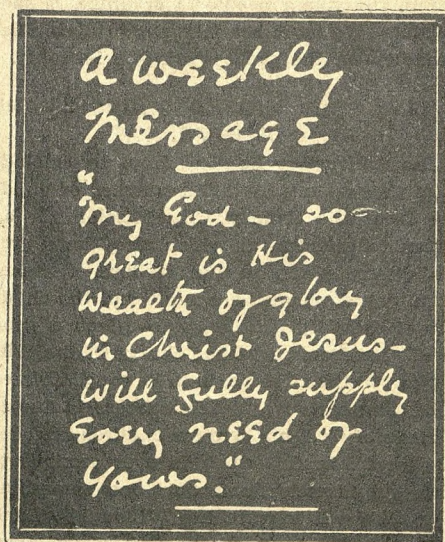 A weekly
Message
"My God – so
great is His
wealth of glory
in Christ Jesus –
will fully supply
every need of
yours."